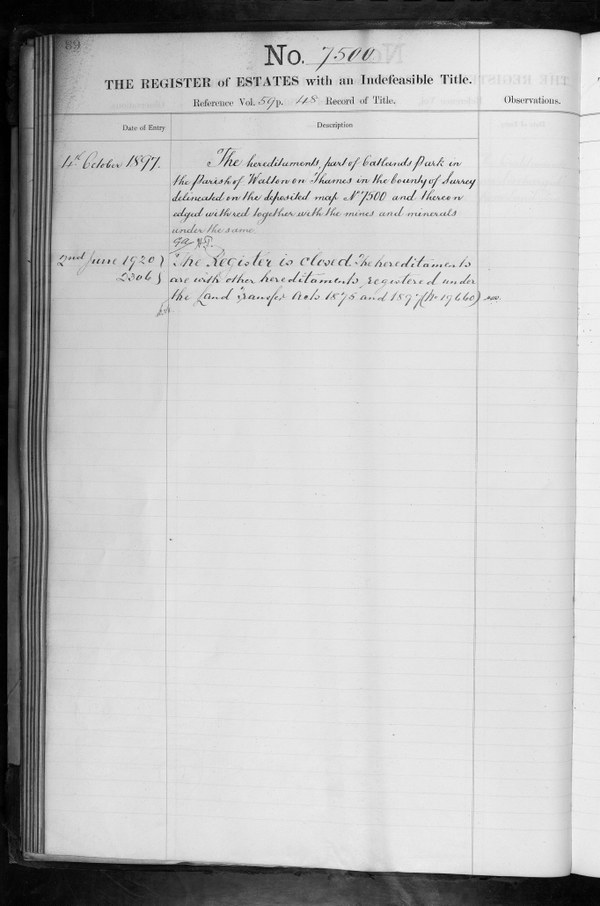 89
No. 7500
THE REGISTER of ESTATES with an Indefeasible Title.
Reference Vol. 59 p. 48 Record of Title.
Observations.
Date of Entry
Description
4th October 1897.
The hereditaments, part of Oatlands Park in
the Parish of Walton on Thames in the County of Surrey
delineated on the deposited map No 7500 and thereon
edged with red together with the mines and minerals
under the same
2nd June 1920 }
2306 }
The Register is closed. The hereditaments
are with other hereditaments registered under
the Land Transfer Acts 1875 and 1897 (No 19660)